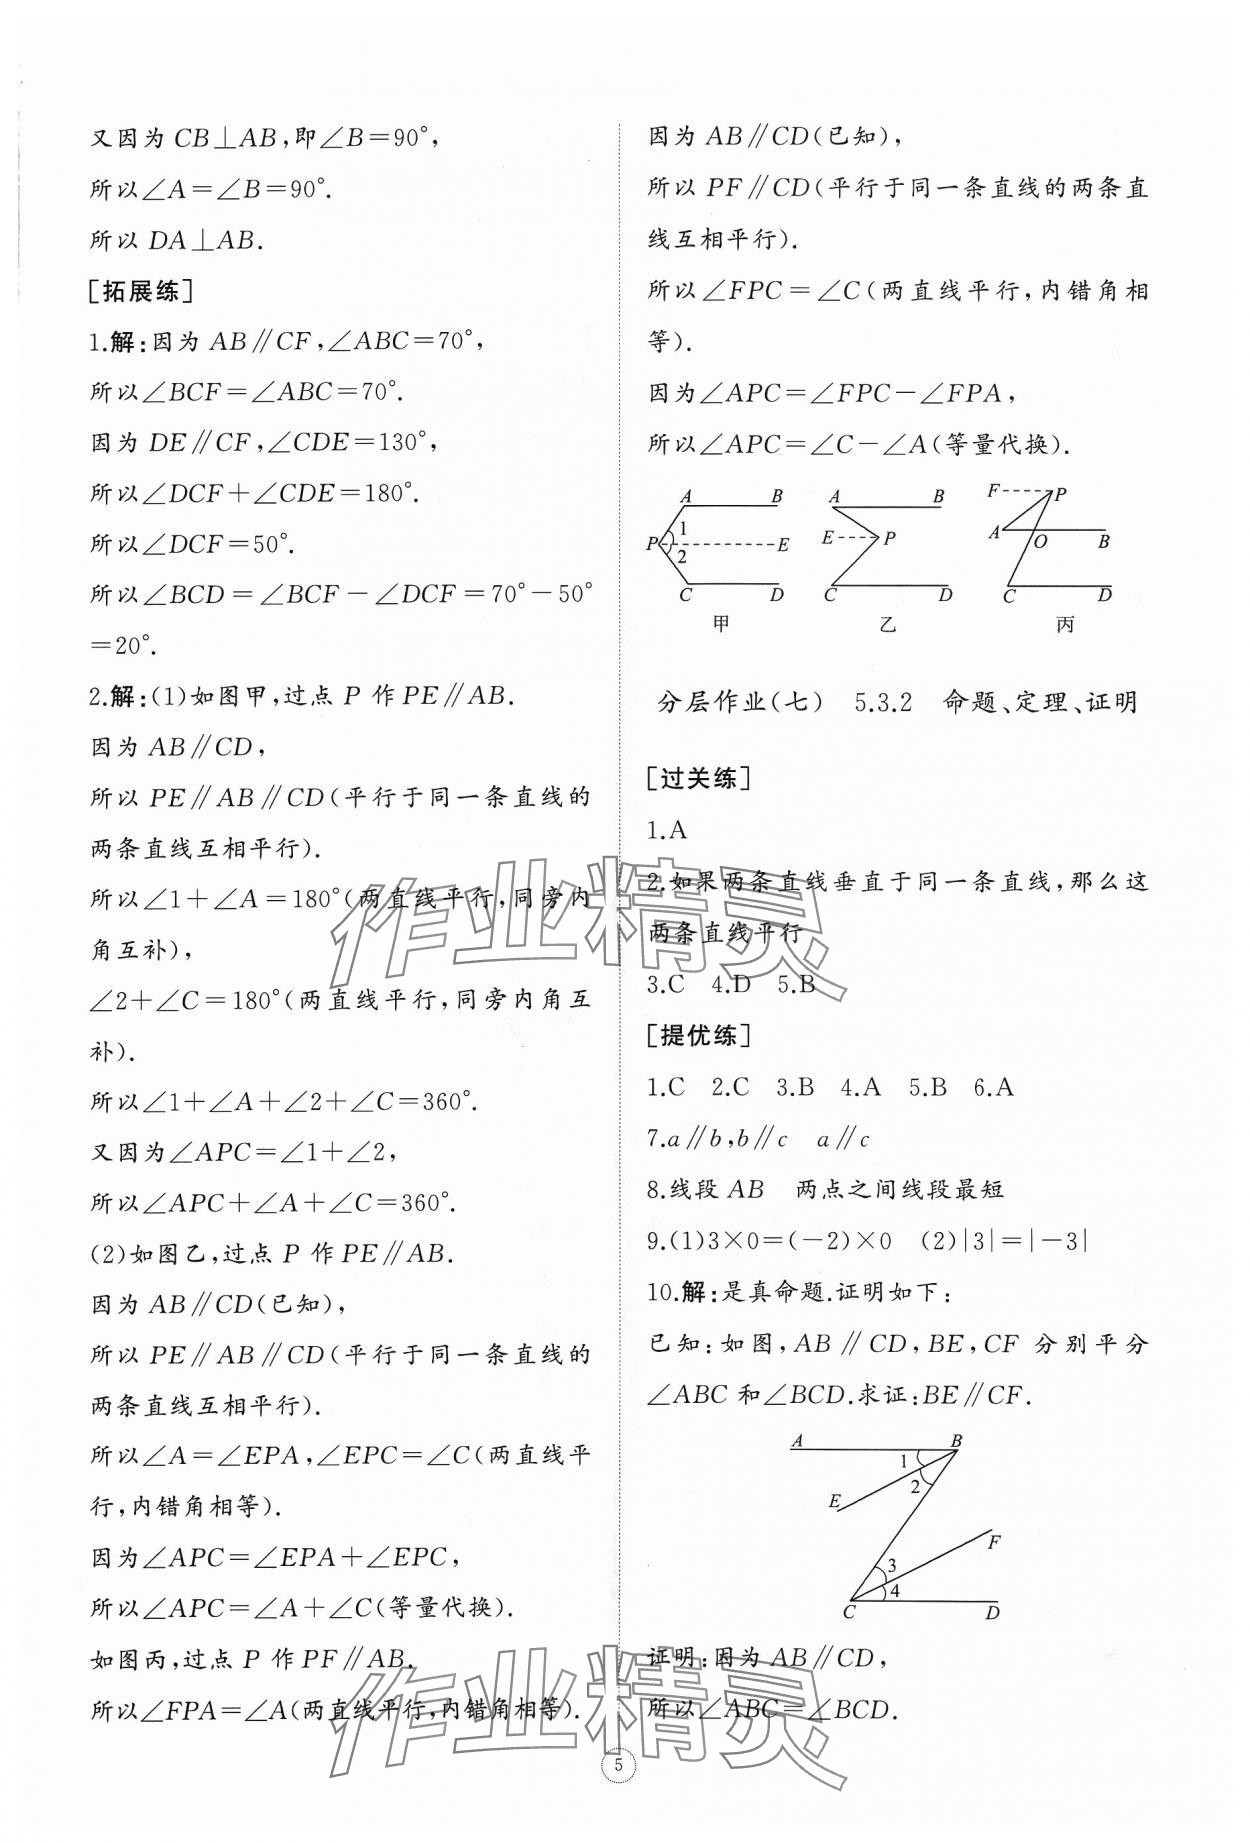 又因为 CB⊥AB,即∠B=90°,
所以∠A=∠B=90°.
所以 DA⊥AB.
[拓展练]
1.解:因为 AB∥CF,∠ABC=70°,
所以∠BCF=∠ABC=70°.
因为 DE∥CF,∠CDE=130°,
所以∠DCF+∠CDE=180°.
所以∠DCF=50°.
所以∠BCD=∠BCF-∠DCF=70°-50°
=20°.
2.解:(1)如图甲,过点 P 作 PE∥AB.
因为 AB∥CD,
所以 PE∥AB∥CD(平行于同一条直线的
两条直线互相平行).
所以∠1+∠A=180°(两直线平行,同旁内
角互补),
∠2+∠C=180°(两直线平行,同旁内角互
补).
所以∠1+∠A+∠2+∠C=360°.
又因为∠APC=∠1+∠2,
所以∠APC+∠A+∠C=360°.
(2)如图乙,过点 P 作 PE∥AB.
因为 AB∥CD(已知),
所以 PE∥AB∥CD(平行于同一条直线的
两条直线互相平行).
所以∠A=∠EPA,∠EPC=∠C(两直线平
行,内错角相等).
因为∠APC=∠EPA+∠EPC,
所以∠APC=∠A+∠C(等量代换).
如图丙,过点 P 作 PF∥AB.
所以∠FPA=∠A(两直线平行,内错角相等).
因为 AB∥CD(已知),
所以 PF∥CD(平行于同一条直线的两条直
线互相平行).
所以∠FPC=∠C(两直线平行,内错角相
等).
因为∠APC=∠FPC-∠FPA,
所以∠APC=∠C-∠A(等量代换).
A B A B F P
1 E P A O B
P 2 E
C D C D C D
甲 乙 丙
分层作业(七) 5.3.2 命题、定理、证明
[过关练]
1.A
2.如果两条直线垂直于同一条直线,那么这
两条直线平行
3.C 4.D 5.B
[提优练]
1.C 2.C 3.B 4.A 5.B 6.A
7.a∥b,b∥c a∥c
8.线段 AB 两点之间线段最短
9.(1)3×0=(-2)×0 (2)|3|=|-3|
10.解:是真命题.证明如下:
已知:如图,AB∥CD,BE,CF 分别平分
∠ABC 和∠BCD.求证:BE∥CF.
A B
1
2
E
F
3
4
C D
证明:因为 AB∥CD,
所以∠ABC=∠BCD.
作业精灵
作业精灵
5